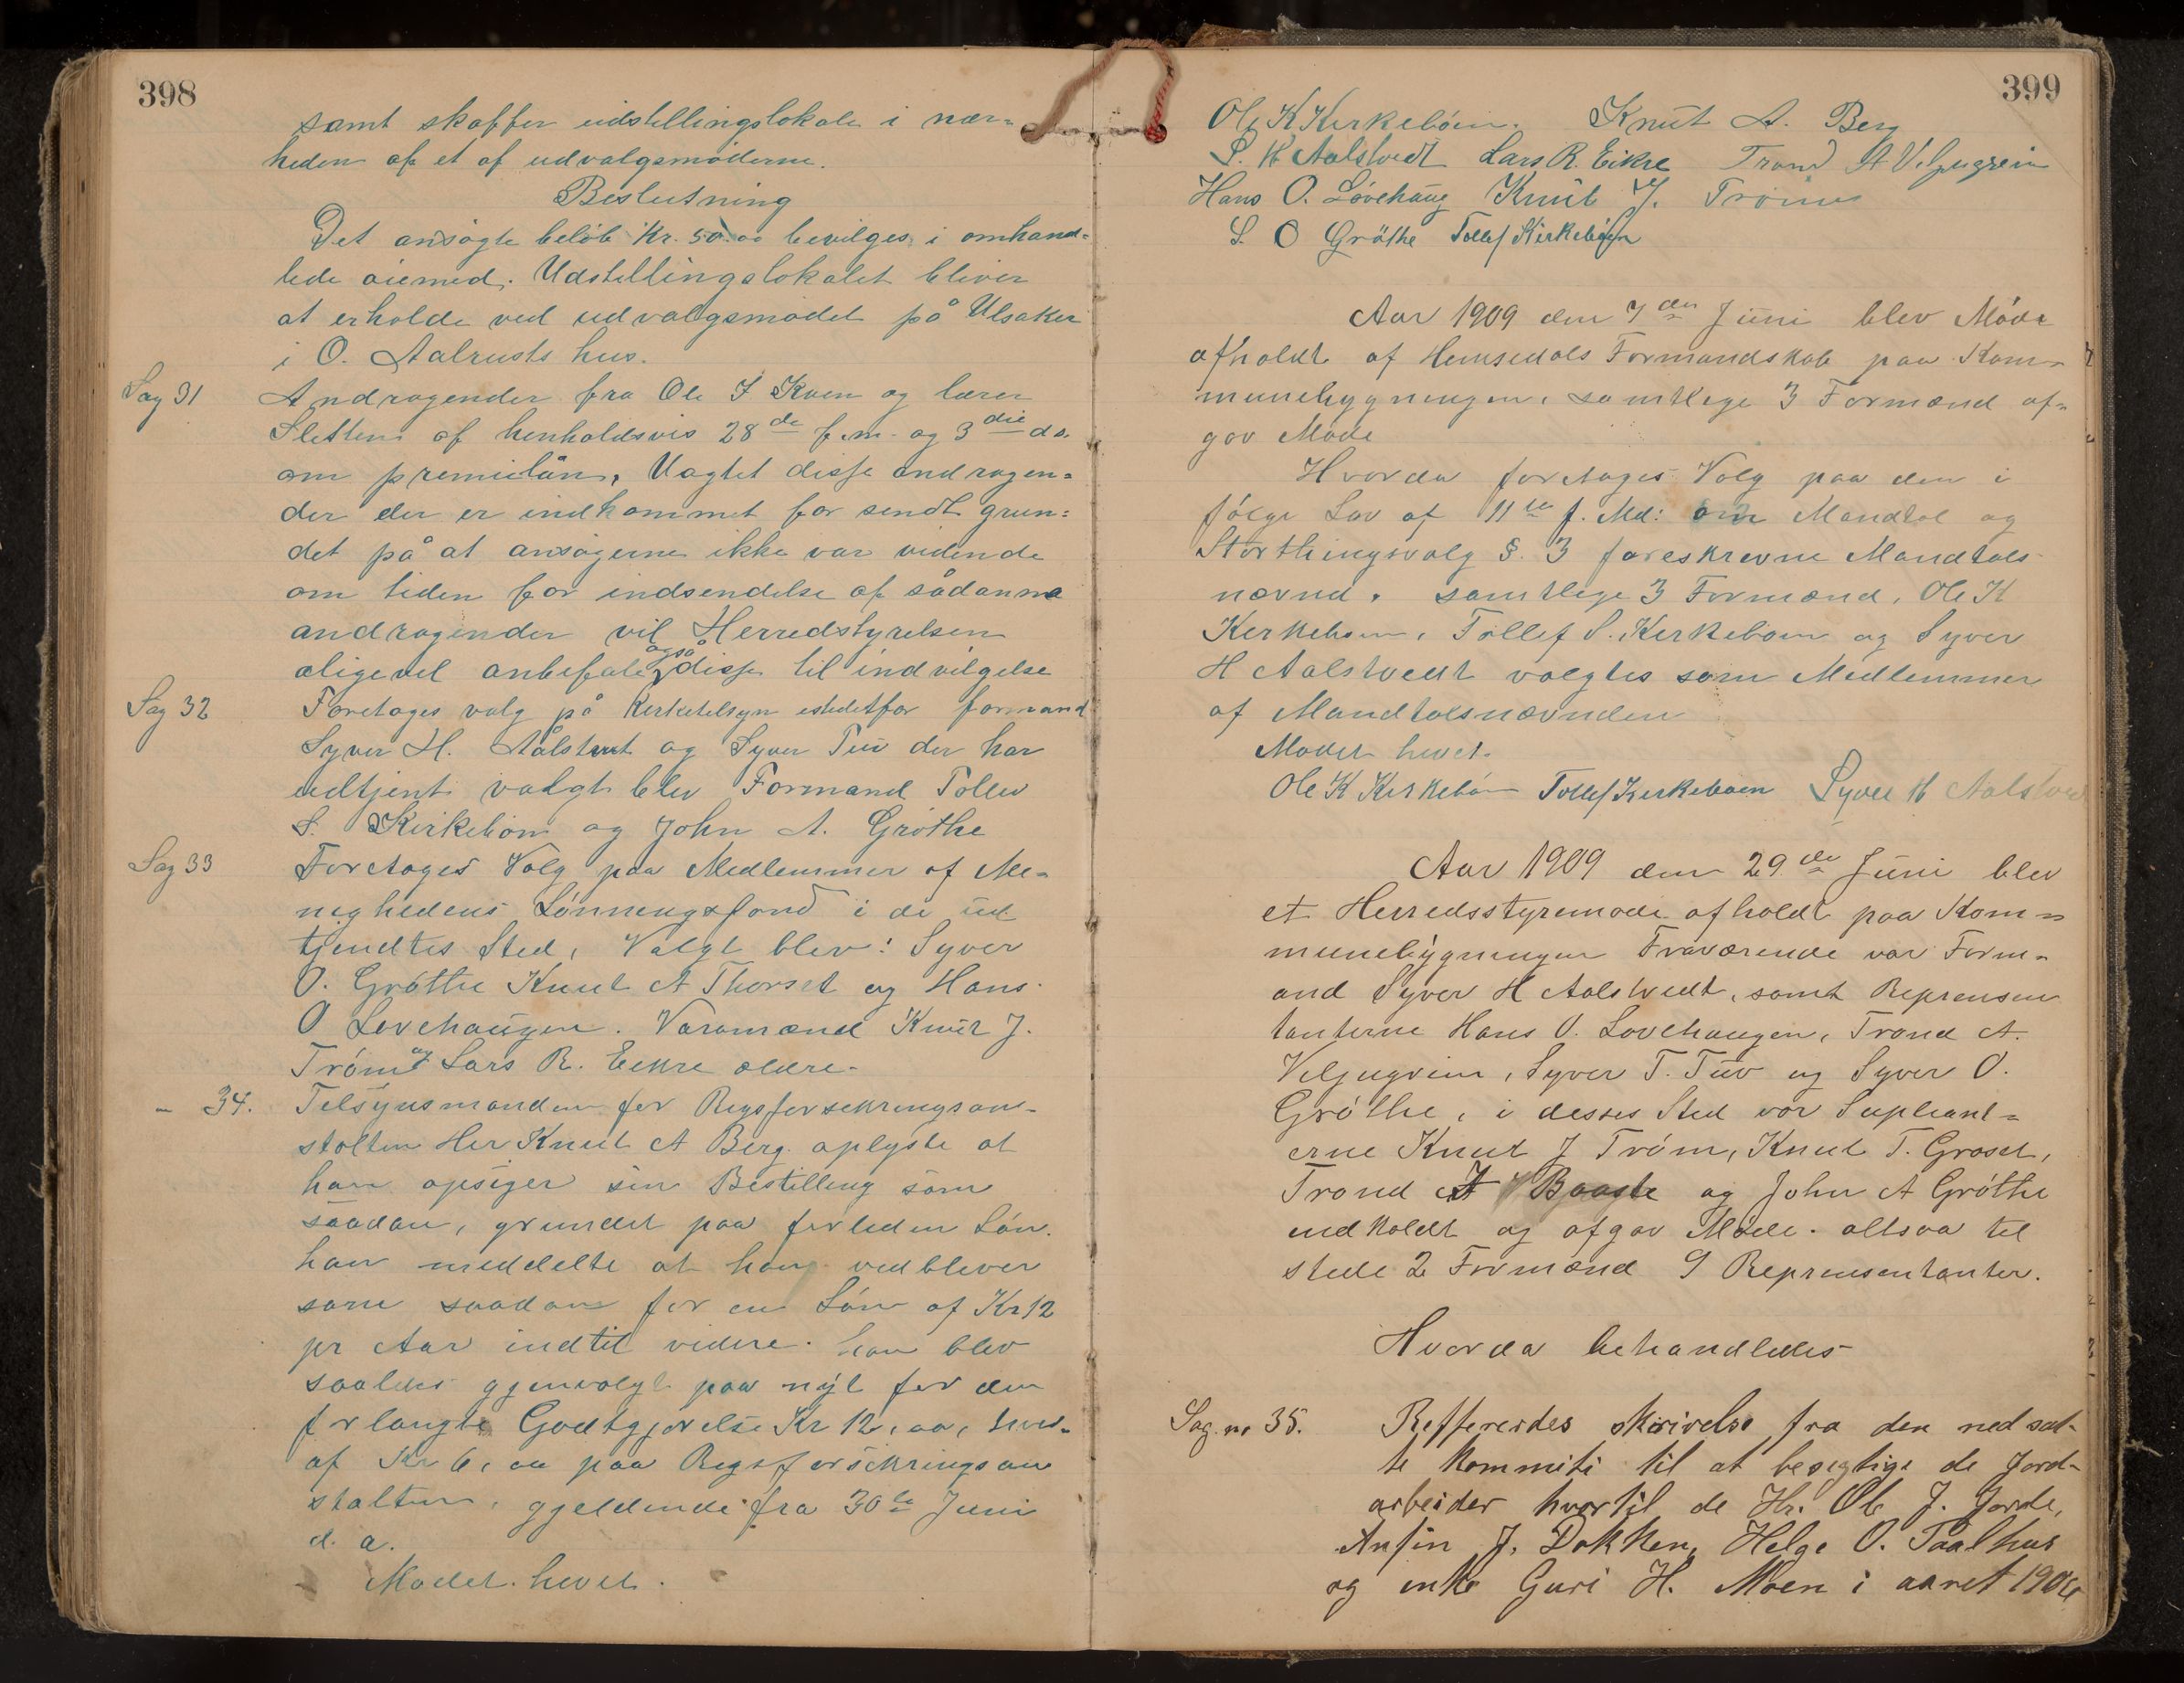 398
samt skaffer udstillingslokale i nær-
heden af et af udvalgsmöderne.
Beslutning
Det ansøgte beløb Kr. 50.00 bevilges i omhand-
lede öiemed. Udstillingslokalet bliver
at erholde ved udvalgsmödet på Ulsaker
i O. Aalrusts hus.
Sag 31 Andragender fra Ole I Kven og lærer
Sletten af henholdsvis 28de f.m. og 3die ds.
om premielån, Uagtet disse andragen-
der der er indkommet for sendt grun-
det på at ansögerne ikke var vidende
om tiden for indsendelse af sådanne
andragender vil Herredstyrelsen
aligevel anbefale også disse til indvilgelse
Sag 32 Foretages valg på Kirketilsyn istedetfor formand
Syver H. Ålstvet og Syver Tuv der har
udtjent valgt blev Formand Tollev
S. Kirkebön og John A. Gröthe
Sag 33 Foretages Valg paa Medlemmer af Me-
nighedens Lönningsfond i de ud
tjendtes Sted, Valgt blev: Syver
O. Gröthe Knut A Thorset og Hans
O Lövehaugen. Varamænd Knut J.
Tröim og Lars R. Eikre ældre.
- 34. Tilsynsmanden for Rigsforsikringsan-
stalten Her Knut A Berg oplyste at
han opsiger sin Bestilling som
saadan, grundet paa forliden Lön.
han meddelte at han vedbliver
som saadan for en Lön af Kr 12
pr Aar indtil videre. han blev
saaledes gjenvalgt paa nyt for den
forlangte Godtgjørelse Kr 12,00, hver-
af Kr 6,00 paa Rigsforsikringsan
stalten, gjeldende fra 30te Juni
d. a.
Mödet hevet.
399
Ole K Kirkeböen. Knut A. Berg
S. H Aalstvedt Lars R. Eikre Trond A Veljugrein
Hans O. Lövehaug Knut J. Tröim
S. O Gröthe Tollef Kirkeböen
Aar 1909 den 7de Juni blev Möde
afholdt af Hemsedals Formandskab paa Kom-
munebygningen, samtlige 3 Formænd af-
gav Möde
Hvorda foretages Valg paa den i
fölge Lov af 11te f. Md: om Mandtal og
Storthingsvalg §. 3 foreskrevne Mandtals
nævnd. samtlige 3 Formænd, Ole K
Kirkeboen, Tollef S. Kirkeboen og Syver
H Aalstvedt valgtes som Medlemmer
af Mandtalsnævnden
Mödet hevet.
Ole K Kirkebön Tollef Kirkeboen Syver H Aalstved
Aar 1909 den 29de Juni blev
et Herredsstyremöde afholdt paa Kom-
munebygningen Fraværende var Form-
and Syver H Aalstvedt, samt Reprensen
tanterne Hans O. Lövehaugen, Trond A.
Veljugrein, Syver T. Tuv og Syver O.
Gröthe, i desses Sted var Supleant-
erne Knut J Tröim, Knut T. Gröset,
Trond Baaste og John A Gröthe
indkaldt og afgav Möde. altsaa til
stede 2 Formænd 9 Reprensentanter.
Hvorda behandledes
Sag. no 35. Reffereides skrivelse fra den nedsat-
te kommite til at besigtige de Jord-
arbeider hvortil de Hr. Ole J. Jorde,
Anfin J. Dokken, Helge O. Taalhus
og enke Guri H. Moen i aaret 1906